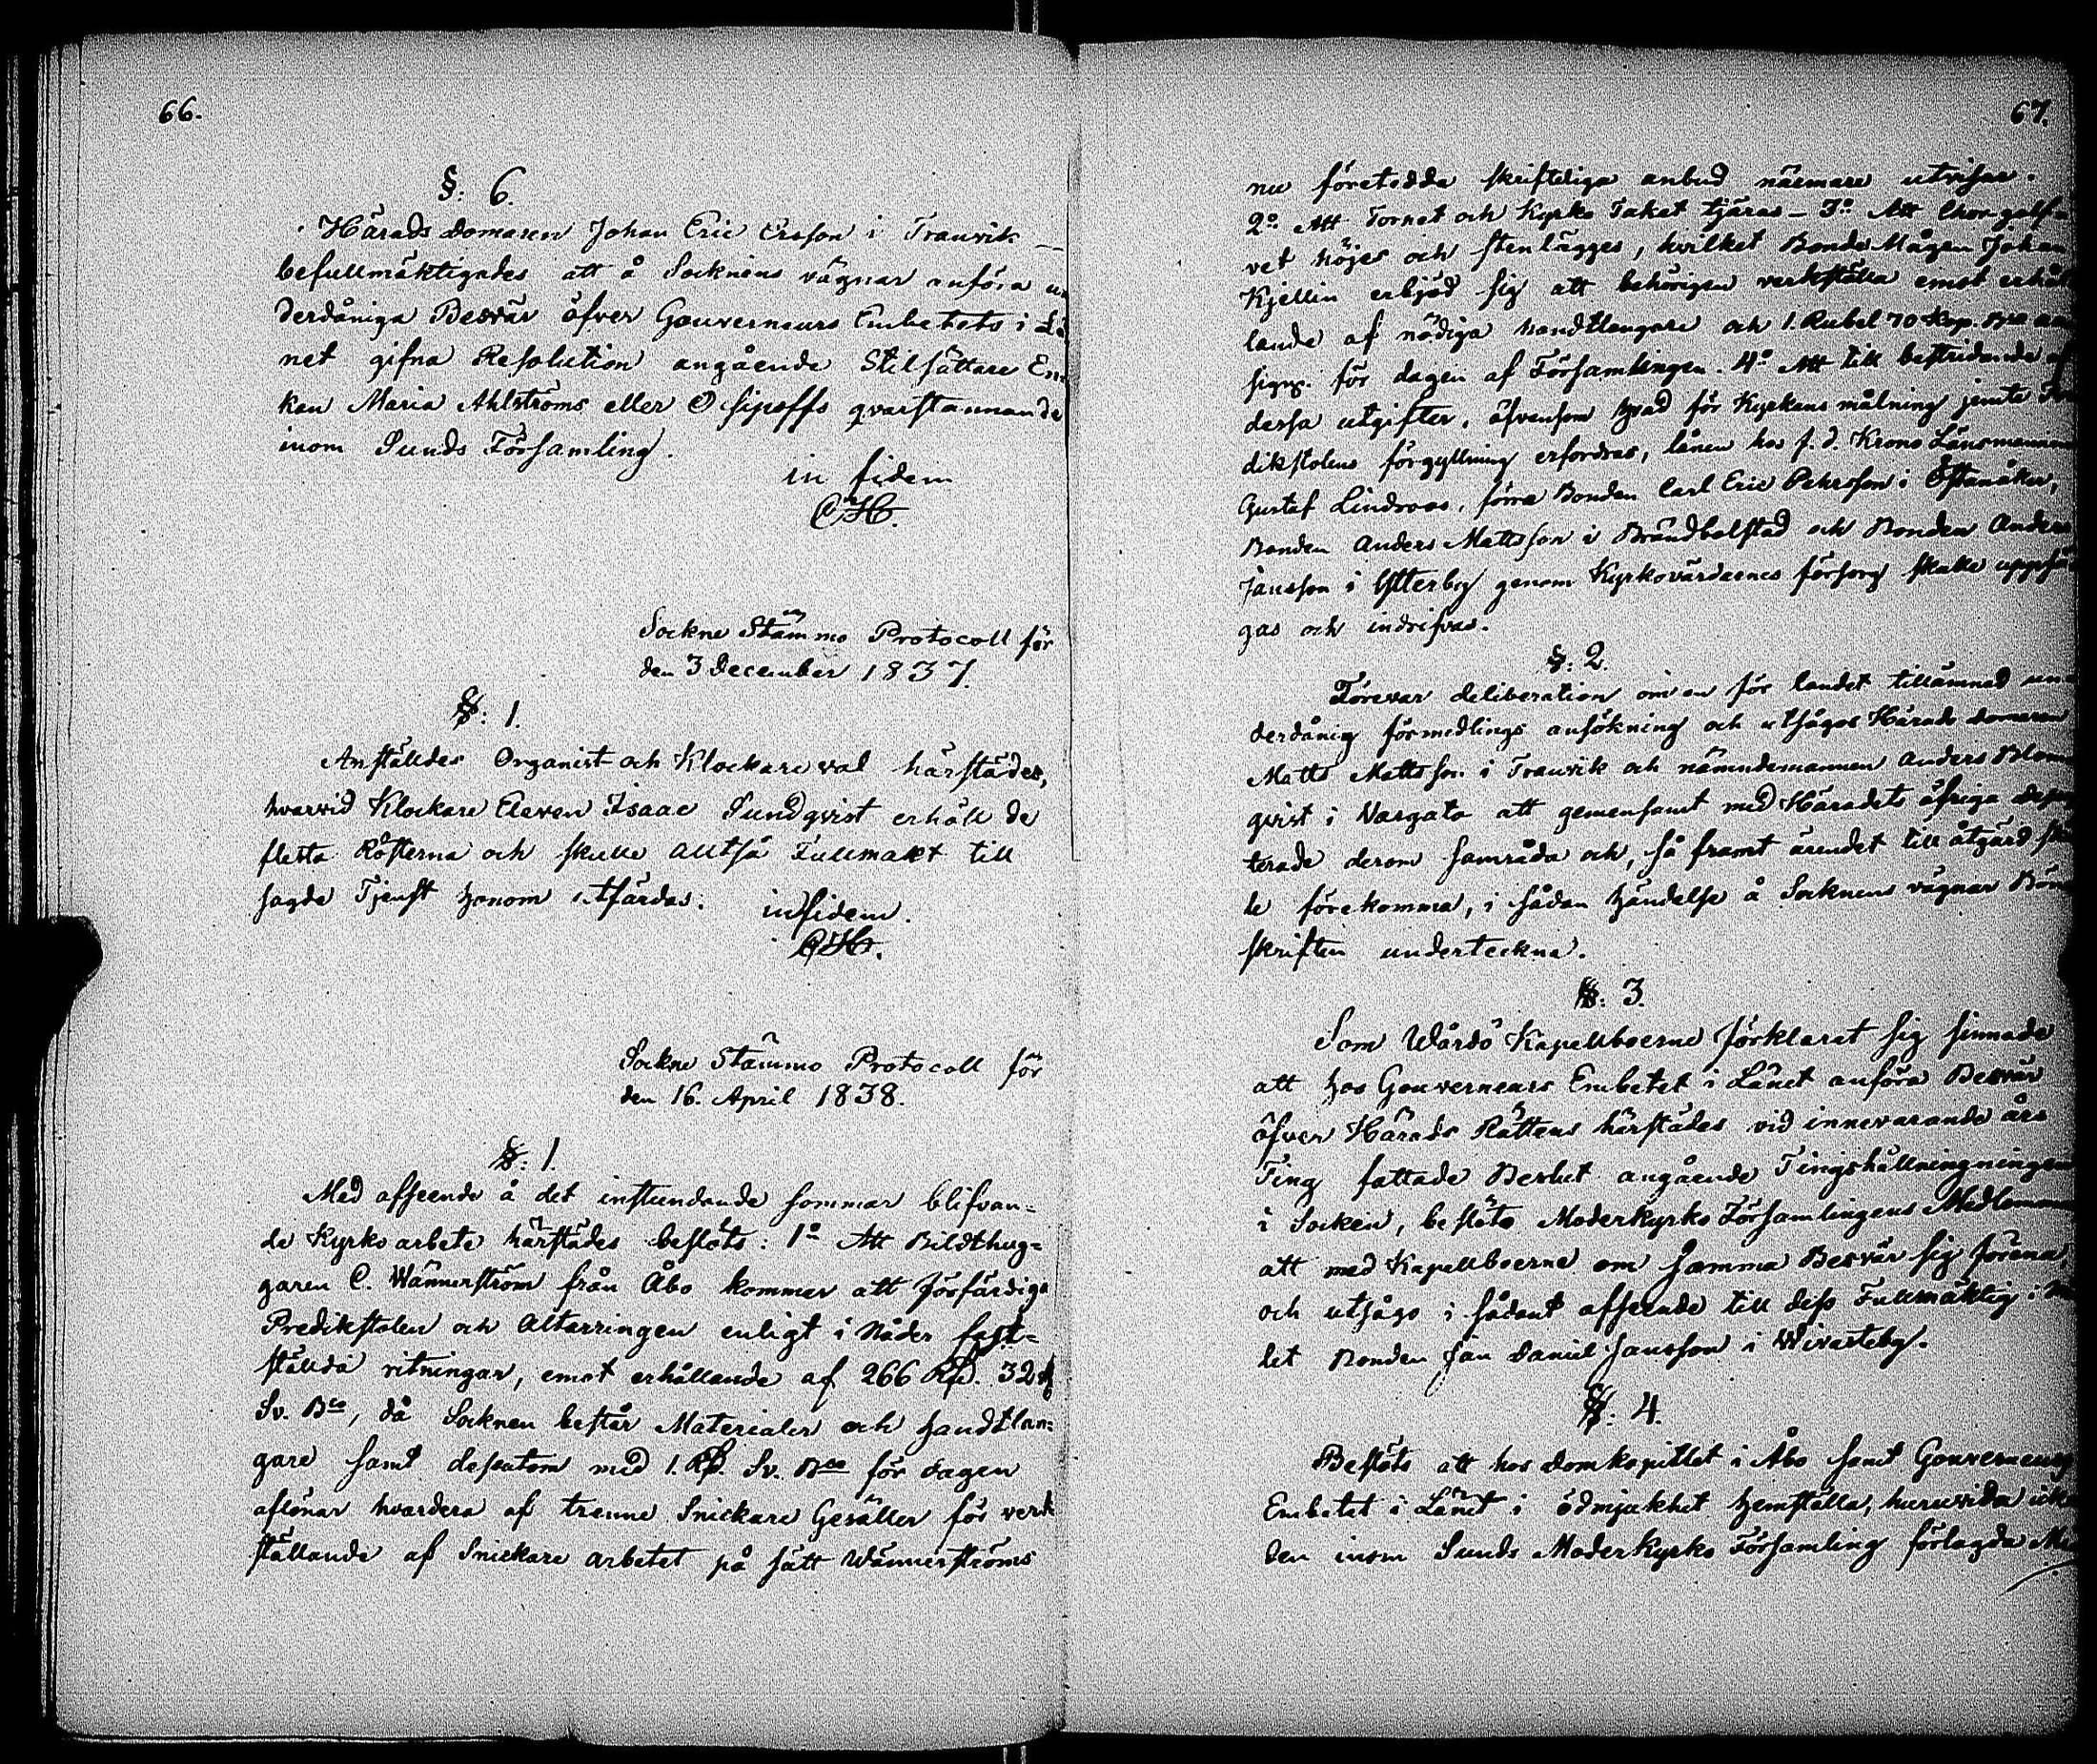 66.
§: 6.
Härads Domaren Johan Eric Ersson i Tranvik
befullmäktigades att å Socknens vägnar anföra un
derdåniga Besvär öfver Gouverneurs Embetets i Lä
net gifna Resolution angående Stilsättare En=
kan Maria Ahlströms eller Osipoffs qvarstannande
inom Sunds Församling.
in fidem
Sockne Stämmo Protocoll för
den 3 December 1837.
§: 1.
Anställdes Organist och Klockare val härstädes,
hvarvid Klockare Eleven Isaac Sundqvist erhöll de
flesta Rösterna och skulle alltså Fullmakt till
sagde Tjenst honom utfärdas.
in fidem.
Sockne Stämmo Protocoll för
den 16. April 1838.
§: 1.
Med afseende å det instundande sommar blifvan=
de Kyrko arbete härstädes beslöts: 1o Att Bildthug=
garen C. Wännerström från Åbo kommer att förfärdiga
Predikstolen och Altarringen enligt i Nåder fast=
ställda ritningar, emot erhållande af 266 Rd. 32 s
Sv. Bco, då Socknen består Materialer och handtlan=
gare samt dessutom med 1. Rd. Sv. Bco för dagen
aflönar hvardera af trenne Snickare Gesäller för verk
ställande af Snickare arbetet på sätt Wännerströms
67.
nu företedda skriftliga anbud närmare utvisar.
2o Att Tornet och Kyrko Taket tjäras – 3o Att Chor-golf-
vet höjes och stenlägges, hvilket Bonde Mågen Johan
Kjellin erbjöd sig att behörigen verkställa emot erhål
lande af nödiga handtlangare och 1. Rubel 70 Kop. Bco
för dagen af Församlingen. 4o Att till bestridande af
dessa utgifter, äfvensom hvad för Kyrkans målning jemte Pre
dikstolens förgyllning erfordras, lånen hos f. d. Krono Länsmannen
Gustaf Lindroos, förra Bonden Carl Eric Pehrsson i Östanåker,
Bonden Anders Mattsson i Brändbolstad och Bonden Anders
Jansson i Ytterby genom Kyrkovärdarnes försorg skulle uppsä
gas och indrifvas.
§: 2.
Förevar deliberation om en för landet tillämnad un
derdånig förmedlings ansökning och utsågos Härads domaren
Matts Mattsson i Tranvik och nämndemannen Anders Blom
qvist i Vargata att gemensamt med Häradets öfriga Depu
terade derom samråda och, så framt ärendet till åtgärd skul
le förekomma, i sådan händelse å Socknens vägnar Böne
skriften underteckna.
§: 3.
Som Wårdö Kapellboerne förklarat sig sinnade
att hos Gouverneurs Embetet i Länet anföra Besvär
öfver Härads Rättens härstädes vid innevarande års
Ting fattade Beslut angående Tingshällningningen
i Socken, beslöto Moderkyrko Församlingens Medlemmar
att med Kapellboerne om samma Besvär sig förena,
och utsågs i sådant afseende till dess Fullmäktig i
let Bonden Jan Daniel Jansson i Wivasteby.
§: 4.
Beslöts att hos Domkapitlet i Åbo samt Gouverneurs
Embetet i Länet i ödmjukhet hemställa, huruvida icke
den inom Sunds Moderkyrko Församling förlagda Mi